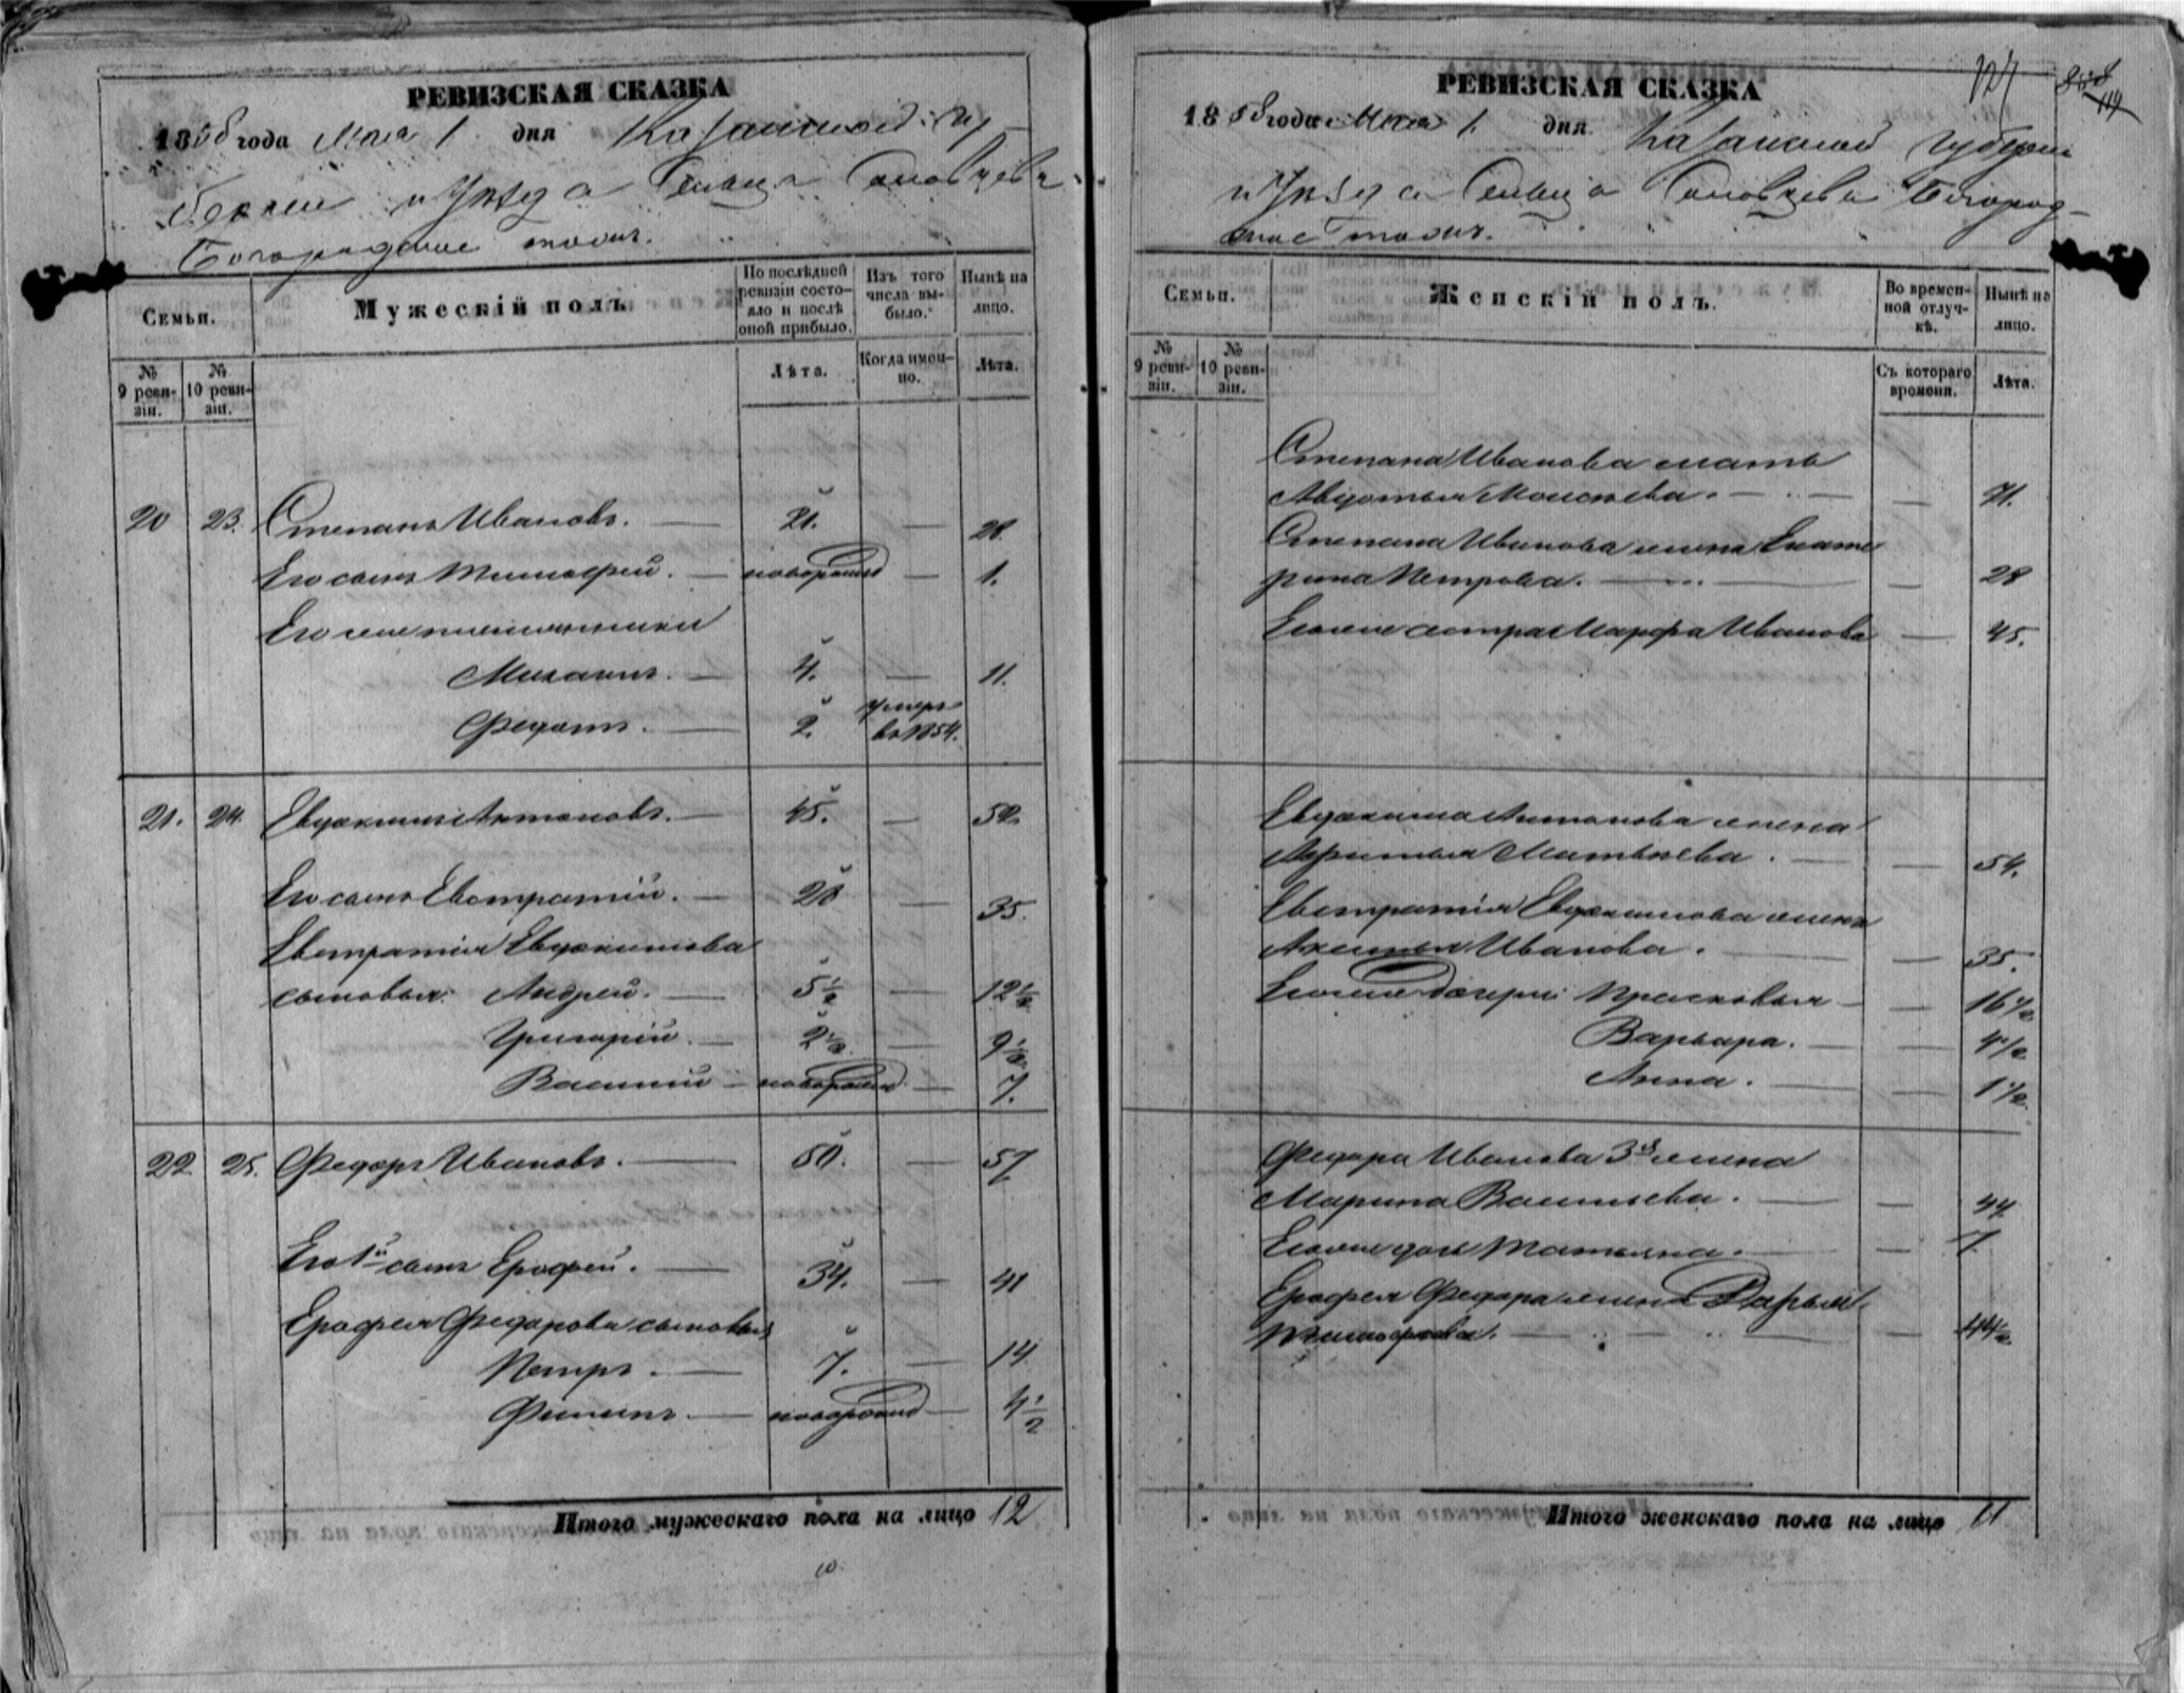 РЕВИЗСКАЯ СКАЗКА
1858 года Мая 1 дня Казанской гу
бернии и Уезда Сельца
Богородское тожъ.
Семьи.
Мужескій полъ
По послѣдней ревизіи состояло и послѣ оной прибыло.
Изъ того числа выбыло.
Нынѣ на лицо.
№ 9 ревизіи.
№ 10 ревизіи.
Лѣта.
Когда именно.
Лѣта.
20 23. Степанъ Ивановъ. — 21. — 28
Его сынъ Тимофей. — новорожд — 1.
Его же племянники
Михаилъ. — 4. — 11.
Федотъ. — 2. умеръ въ 1854.
21. 24 Евдокимъ Антоновъ. — 45. — 52.
Его сынъ Евстратій. — 28 — 35.
Евстратія Евдокимова
сыновья: Андрей. — 5 1/2 — 12 1/2
Григорій. — 2 1/2 — 9 1/2
Василій — новорожд — 7.
22 25. Федоръ Ивановъ. — 50. — 57
Его 1й сынъ Ерофей. — 34. — 41
Ерофея Федорова сыновья
Петръ. — 7. — 14
Филипъ. — новорожд — 4 1/2
Итого мужескаго пола на лицо 12
РЕВИЗСКАЯ СКАЗКА
124
1858 года Мая 1. дня Казанской губерни
и Уезда Сельца Богород-
ское тожъ.
Семьи.
Женскій полъ.
Во временной отлучкѣ.
Нынѣ на лицо.
№ 9 ревизіи.
№ 10 ревизіи.
Съ котораго времени.
Лѣта.
Степана Иванова мать
Авдотья Моисѣева. — — 71.
Степана Иванова жена Екате
рина Петрова. — — 28
Его же сестра Марфа Иванова — 45.
Евдокима Антонова жена
Матвѣева. — — 54.
Евстратія Евдокимова жена
Иванова. — — 35.
Его же дочери: Прасковья — — 16 1/2
Варвара. — — 4 1/2
Анна. — — 1 1/2
Федора Иванова 3я жена
Марина Васильева. — — 44
Его же дочь Татьяна. — — 7
Ерофея Федора жена Дарья
Тимофѣева. — — 44 1/2
Итого женскаго пола на лицо 11